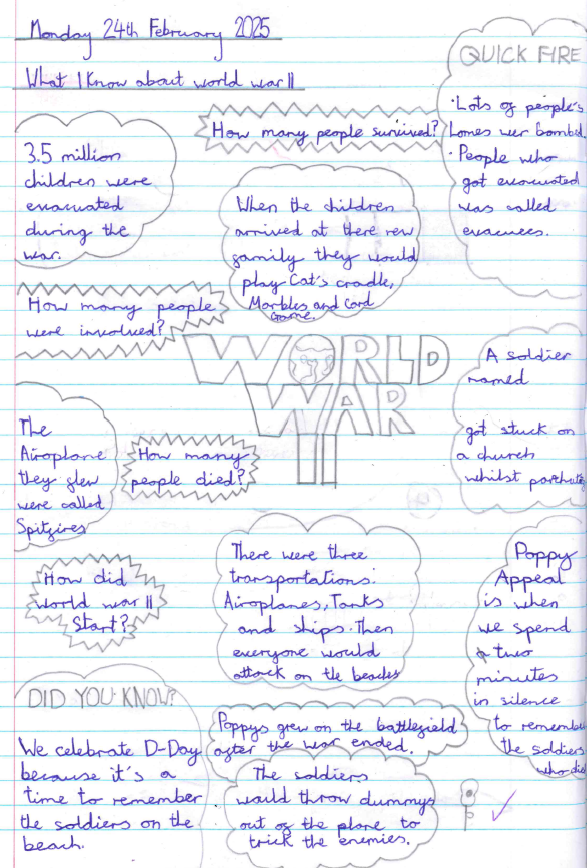 Monday 24th February 2025
What I Know about world war II
QUICK FIRE
· Lots of people's
homes wer bombed.
· People who
got evacuated
was called
evacuees.
How many people survived?
3.5 million
children were
evacuated
during the
war.
When the children
arrived at there new
family they would
play Cat's cradle,
Marbles and Card
Game.
How many people
were involved?
WORLD
WAR
II
A soldier
named
got stuck on
a church
whilst
The
Airoplane
they flew
were called
Spitfires
How many
people died?
How did
world war II
Start?
There were three
transportations:
Airoplanes, Tanks
and ships. Then
everyone would
attack on the beaches
Poppy
Appeal
is when
we spend
two
minutes
in silence
to remember
the soldiers
who died
DID YOU KNOW?
We celebrate D-Day
because it's a
time to remember
the soldiers on the
beach.
Poppys grew on the battlefield
after the war ended.
The soldiers
would throw dummys
out of the plane to
trick the enemies.